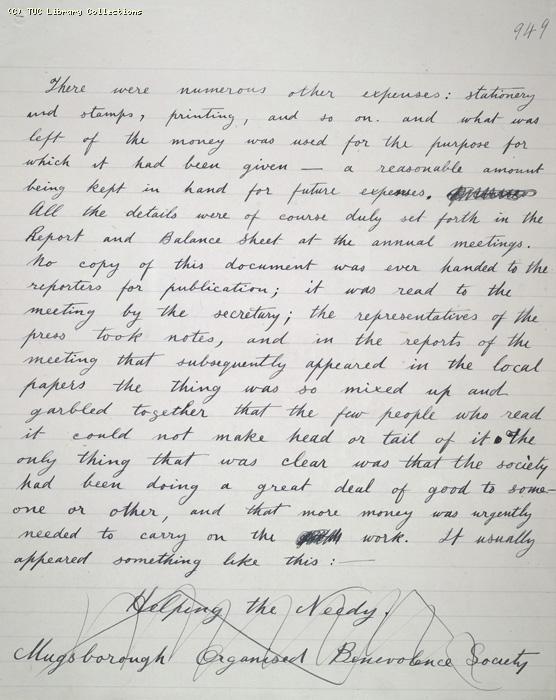 (C) TUC Library Collections
949
There were numerous other expenses: stationery
and stamps, printing, and so on. and what was
left of the money was used for the purpose for
which it had been given — a reasonable amount
being kept in hand for future expenses.
All the details were of course duly set forth in the
Report and Balance Sheet at the annual meetings.
No copy of this document was ever handed to the
reporters for publication; it was read to the
meeting by the secretary; the representatives of the
press took notes, and in the reports of the
meeting that subsequently appeared in the local
papers the thing was so mixed up and
garbled together that the few people who read
it could not make head or tail of it. The
only thing that was clear was that the society
had been doing a great deal of good to some-
one or other, and that more money was urgently
needed to carry on the work. It usually
appeared something like this:—
Helping the Needy.
Mugsborough Organised Benevolence Society